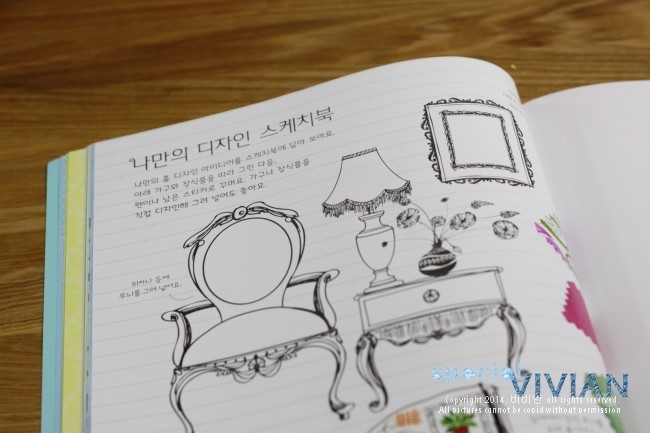 나만의 디자인 스케치북
나만의 홈 디자인 아이디어를 스케치북에 담아 보아요.
아래 가구와 장식품을 따라 그린 다음,
펜이나 남은 스티커로 꾸며요. 가구나 장식품을
직접 디자인해 그려 넣어도 좋아요.
의자나 등에
무늬를 그려 넣어요.
special
VIVIAN
Copyright 2014. 비비안 all rights reserved.
All pictures cannot be copid without permission